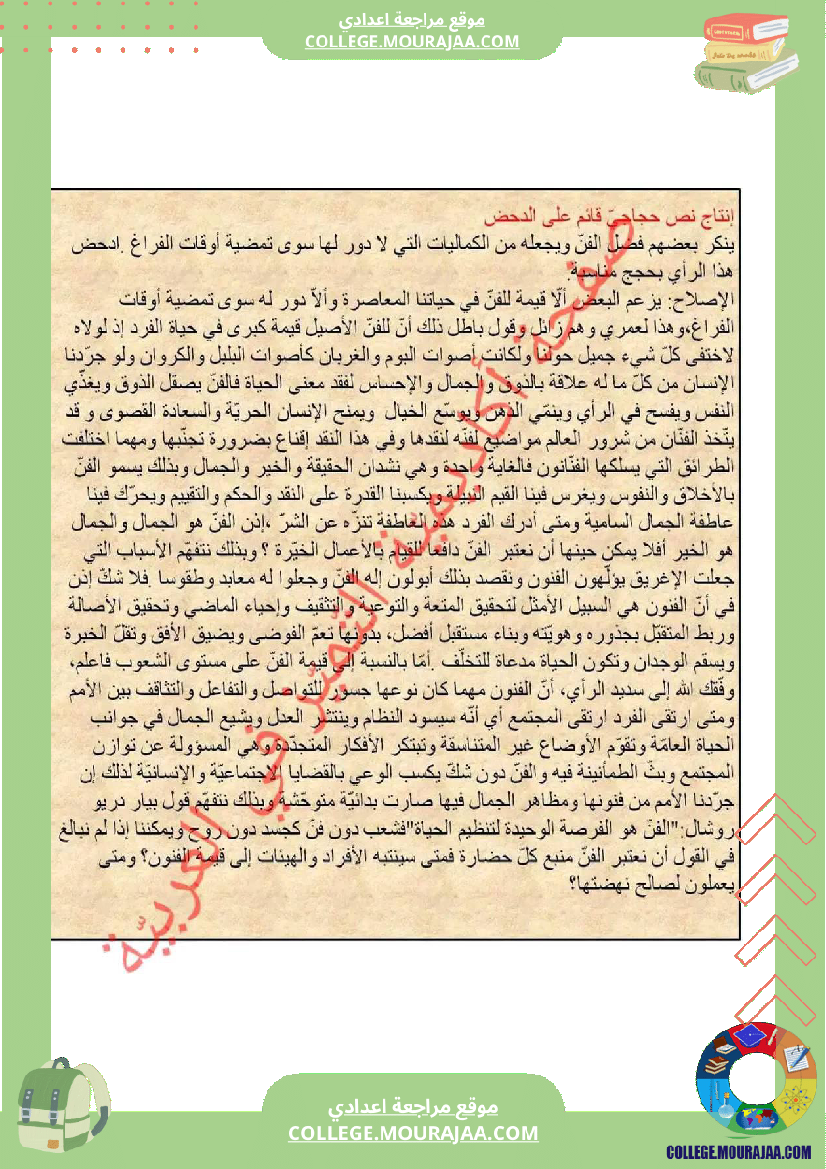 موقع مراجعة اعدادي
COLLEGE.MOURAJAA.COM
إنتاج نص حجاجيّ قائم على الدحض
ينكر بعضهم فضل الفنّ ويجعله من الكماليات التي لا دور لها سوى تمضية أوقات الفراغ .ادحض
هذا الرأي بحجج مناسبة.
الإصلاح: يزعم البعض ألّا قيمة للفنّ في حياتنا المعاصرة وألاّ دور له سوى تمضية أوقات
الفراغ،وهذا لعمري وهم زائل وقول باطل ذلك أنّ للفنّ الأصيل قيمة كبرى في حياة الفرد إذ لولاه
لاختفى كلّ شيء جميل حولنا ولكانت أصوات البوم والغربان كأصوات البلبل والكروان ولو جرّدنا
الإنسان من كلّ ما له علاقة بالذوق والجمال والإحساس لفقد معنى الحياة فالفنّ يصقل الذوق ويغذّي
النفس ويفسح في الرأي وينمّي الذهن ويوسّع الخيال ويمنح الإنسان الحريّة والسعادة القصوى و قد
يتّخذ الفنّان من شرور العالم مواضيع لفنّه لنقدها وفي هذا النقد إقناع بضرورة تجنّبها ومهما اختلفت
الطرائق التي يسلكها الفنّانون فالغاية واحدة و هي نشدان الحقيقة والخير والجمال وبذلك يسمو الفنّ
بالأخلاق والنفوس ويغرس فينا القيم النبيلة ويكسبنا القدرة على النقد والحكم والتقييم ويحرّك فينا
عاطفة الجمال السامية ومتى أدرك الفرد هذه العاطفة تنزّه عن الشرّ ،إذن الفنّ هو الجمال والجمال
هو الخير أفلا يمكن حينها أن نعتبر الفنّ دافعا للقيام بالأعمال الخيّرة ؟ وبذلك نتفهّم الأسباب التي
جعلت الإغريق يؤلّهون الفنون ونقصد بذلك أبولون إله الفنّ وجعلوا له معابد وطقوسا .فلا شكّ إذن
في أنّ الفنون هي السبيل الأمثل لتحقيق المتعة والتوعية والتثقيف وإحياء الماضي وتحقيق الأصالة
وربط المتقبّل بجذوره وهويّته وبناء مستقبل أفضل، بدونها تعمّ الفوضى ويضيق الأفق وتقلّ الخبرة
ويسقم الوجدان وتكون الحياة مدعاة للتخلّف .أمّا بالنسبة إلى قيمة الفنّ على مستوى الشعوب فاعلم،
وفّقك الله إلى سديد الرأي، أنّ الفنون مهما كان نوعها جسور للتواصل والتفاعل والتثاقف بين الأمم
ومتى ارتقى الفرد ارتقى المجتمع أي أنّه سيسود النظام وينتشر العدل ويشيع الجمال في جوانب
الحياة العامّة وتقوّم الأوضاع غير المتناسقة وتبتكر الأفكار المتجدّدة وهي المسؤولة عن توازن
المجتمع وبثّ الطمأنينة فيه والفنّ دون شكّ يكسب الوعي بالقضايا الاجتماعيّة والإنسانيّة لذلك إن
جرّدنا الأمم من فنونها ومظاهر الجمال فيها صارت بدائيّة متوحّشة وبذلك نتفهّم قول بيار دريو
روشال:"الفنّ هو الفرصة الوحيدة لتنظيم الحياة"فشعب دون فنّ كجسد دون روح ويمكننا إذا لم نبالغ
في القول أن نعتبر الفنّ منبع كلّ حضارة فمتى سينتبه الأفراد والهيئات إلى قيمة الفنون؟ ومتى
يعملون لصالح نهضتها؟
صفحة أكاديمية التميّز في العربيّة
موقع مراجعة اعدادي
COLLEGE.MOURAJAA.COM
COLLEGE.MOURAJAA.COM